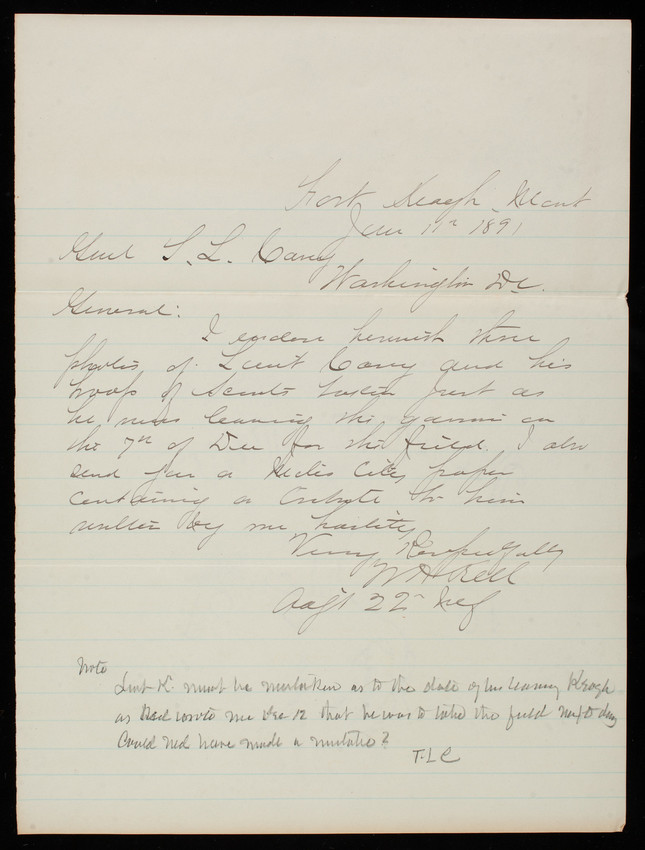 Fort Keogh, Mont
Jan 11th 1891
Genl T. L. Casey
Washington DC.
General:
I enclose herewith three
photos of Lieut Casey and his
troop of Scouts taken just as
he was leaving the garrison on
the 7th of Dec for the field. I also
send you a Miles City paper
containing a tribute to him
written by me hastily
Very Respectfully
W H Kell
Adjt 22d Inf
Note
Lieut K. must be mistaken as to the date of his leaving Keogh
as Ned wrote me Dec 12 that he was to take the field next day
Could Ned have made a mistake?
T.L.C